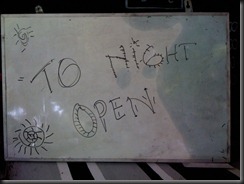 TO NIGHT
OPEN